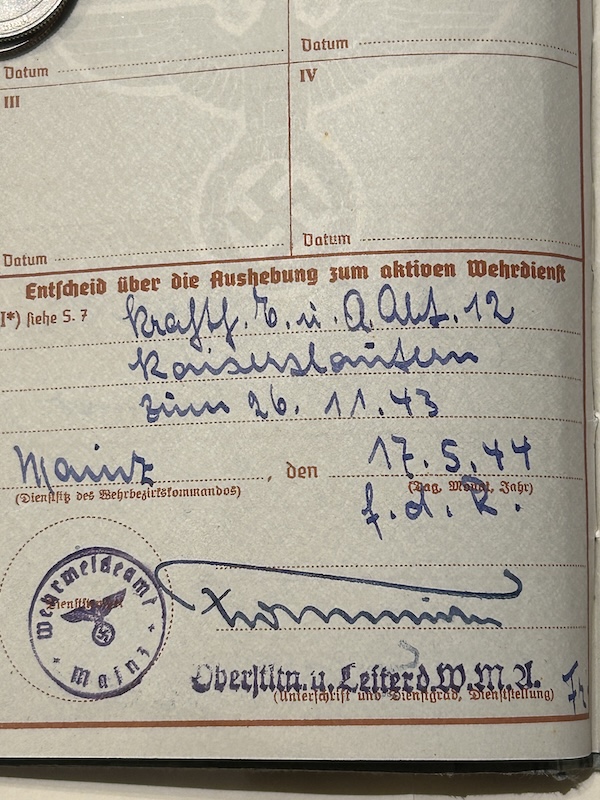 Datum
Datum
III
IV
Datum
Datum
Entscheid über die Aushebung zum aktiven Wehrdienst
I*) siehe S. 7
Kraftf. E. u. A. Abt. 12
Kaiserslautern
zum 26. 11. 43
Mainz, den 17. 5. 44
(Dienstsitz des Wehrbezirkskommandos) (Tag, Monat, Jahr)
f. d. R.
Wehrmeldeamt
Mainz
Oberstltn. u. Leiter d. W. M. A.
(Unterschrift und Dienstgrad, Dienststellung)